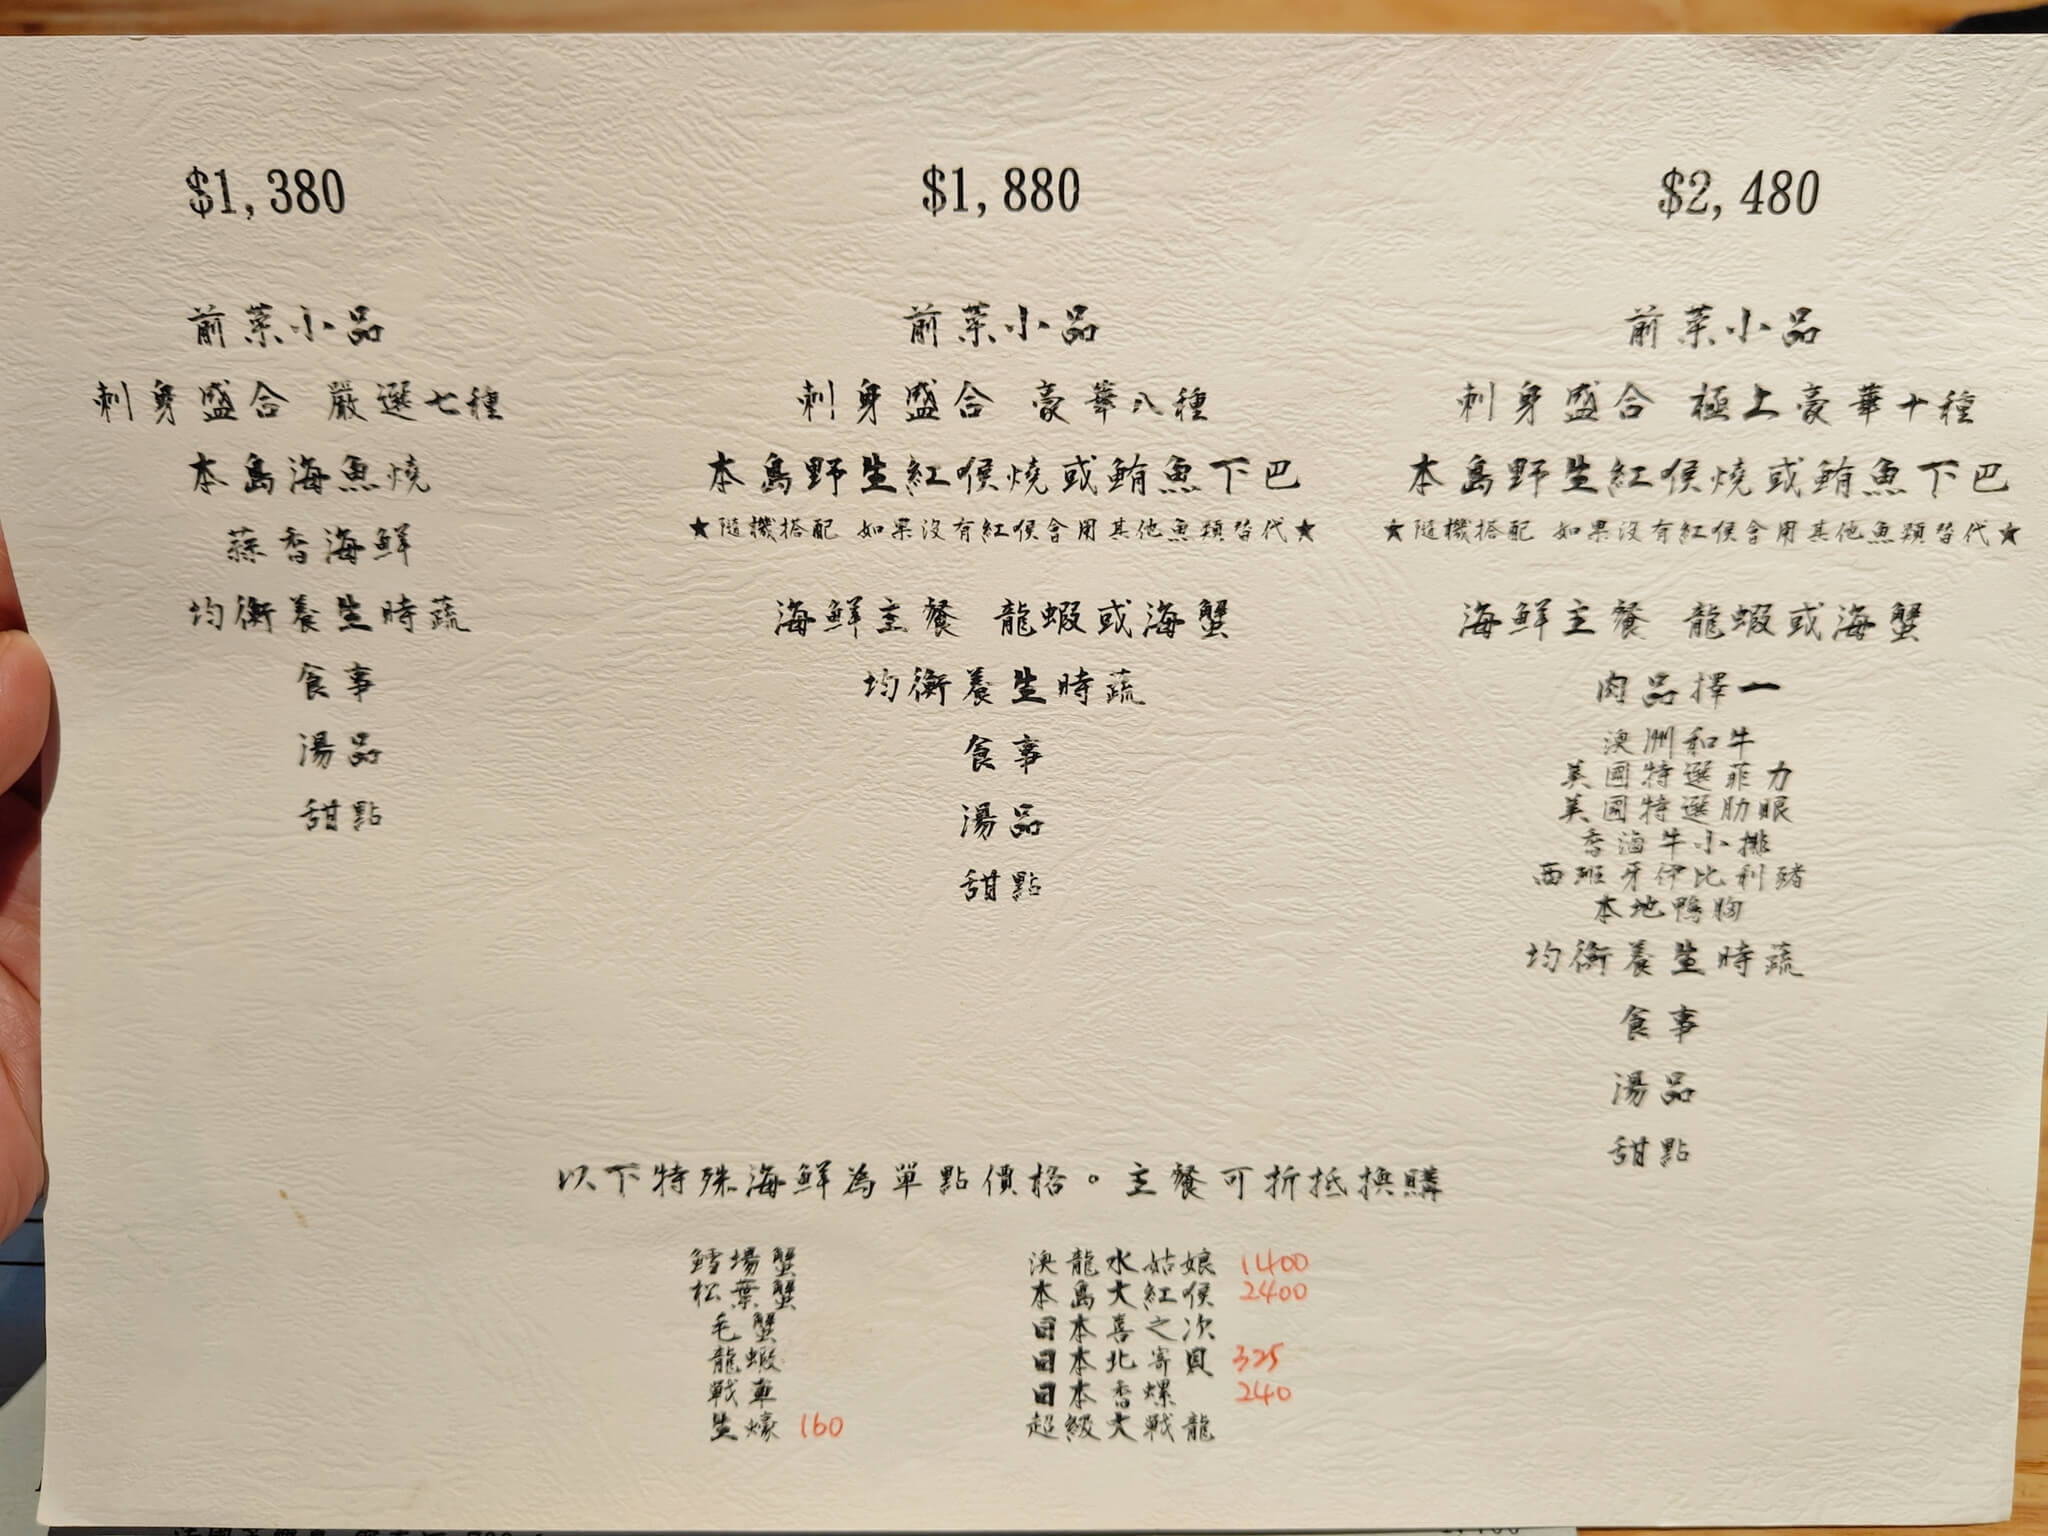 $1,380
前菜小品
刺身盛合 嚴選七種
本島海魚燒
蒜香海鮮
均衡養生時蔬
食事
湯品
甜點
$1,880
前菜小品
刺身盛合 豪華八種
本島野生紅喉燒或鮪魚下巴
★隨機搭配 如果沒有紅喉會用其他魚類替代★
海鮮主餐 龍蝦或海蟹
均衡養生時蔬
食事
湯品
甜點
$2,480
前菜小品
刺身盛合 極上豪華十種
本島野生紅喉燒或鮪魚下巴
★隨機搭配 如果沒有紅喉會用其他魚類替代★
海鮮主餐 龍蝦或海蟹
肉品擇一
澳洲和牛
美國特選菲力
美國特選肋眼
香滷牛小排
西班牙伊比利豬
本地鴨胸
均衡養生時蔬
食事
湯品
甜點
以下特殊海鮮為單點價格。主餐可折抵換購
鱈場蟹
松葉蟹
毛蟹
龍蝦
戰車
生蠔 160
澳龍水姑娘 1400
本島大紅喉 2400
日本喜之次
日本北寄貝 325
日本香螺 240
超級大戰龍